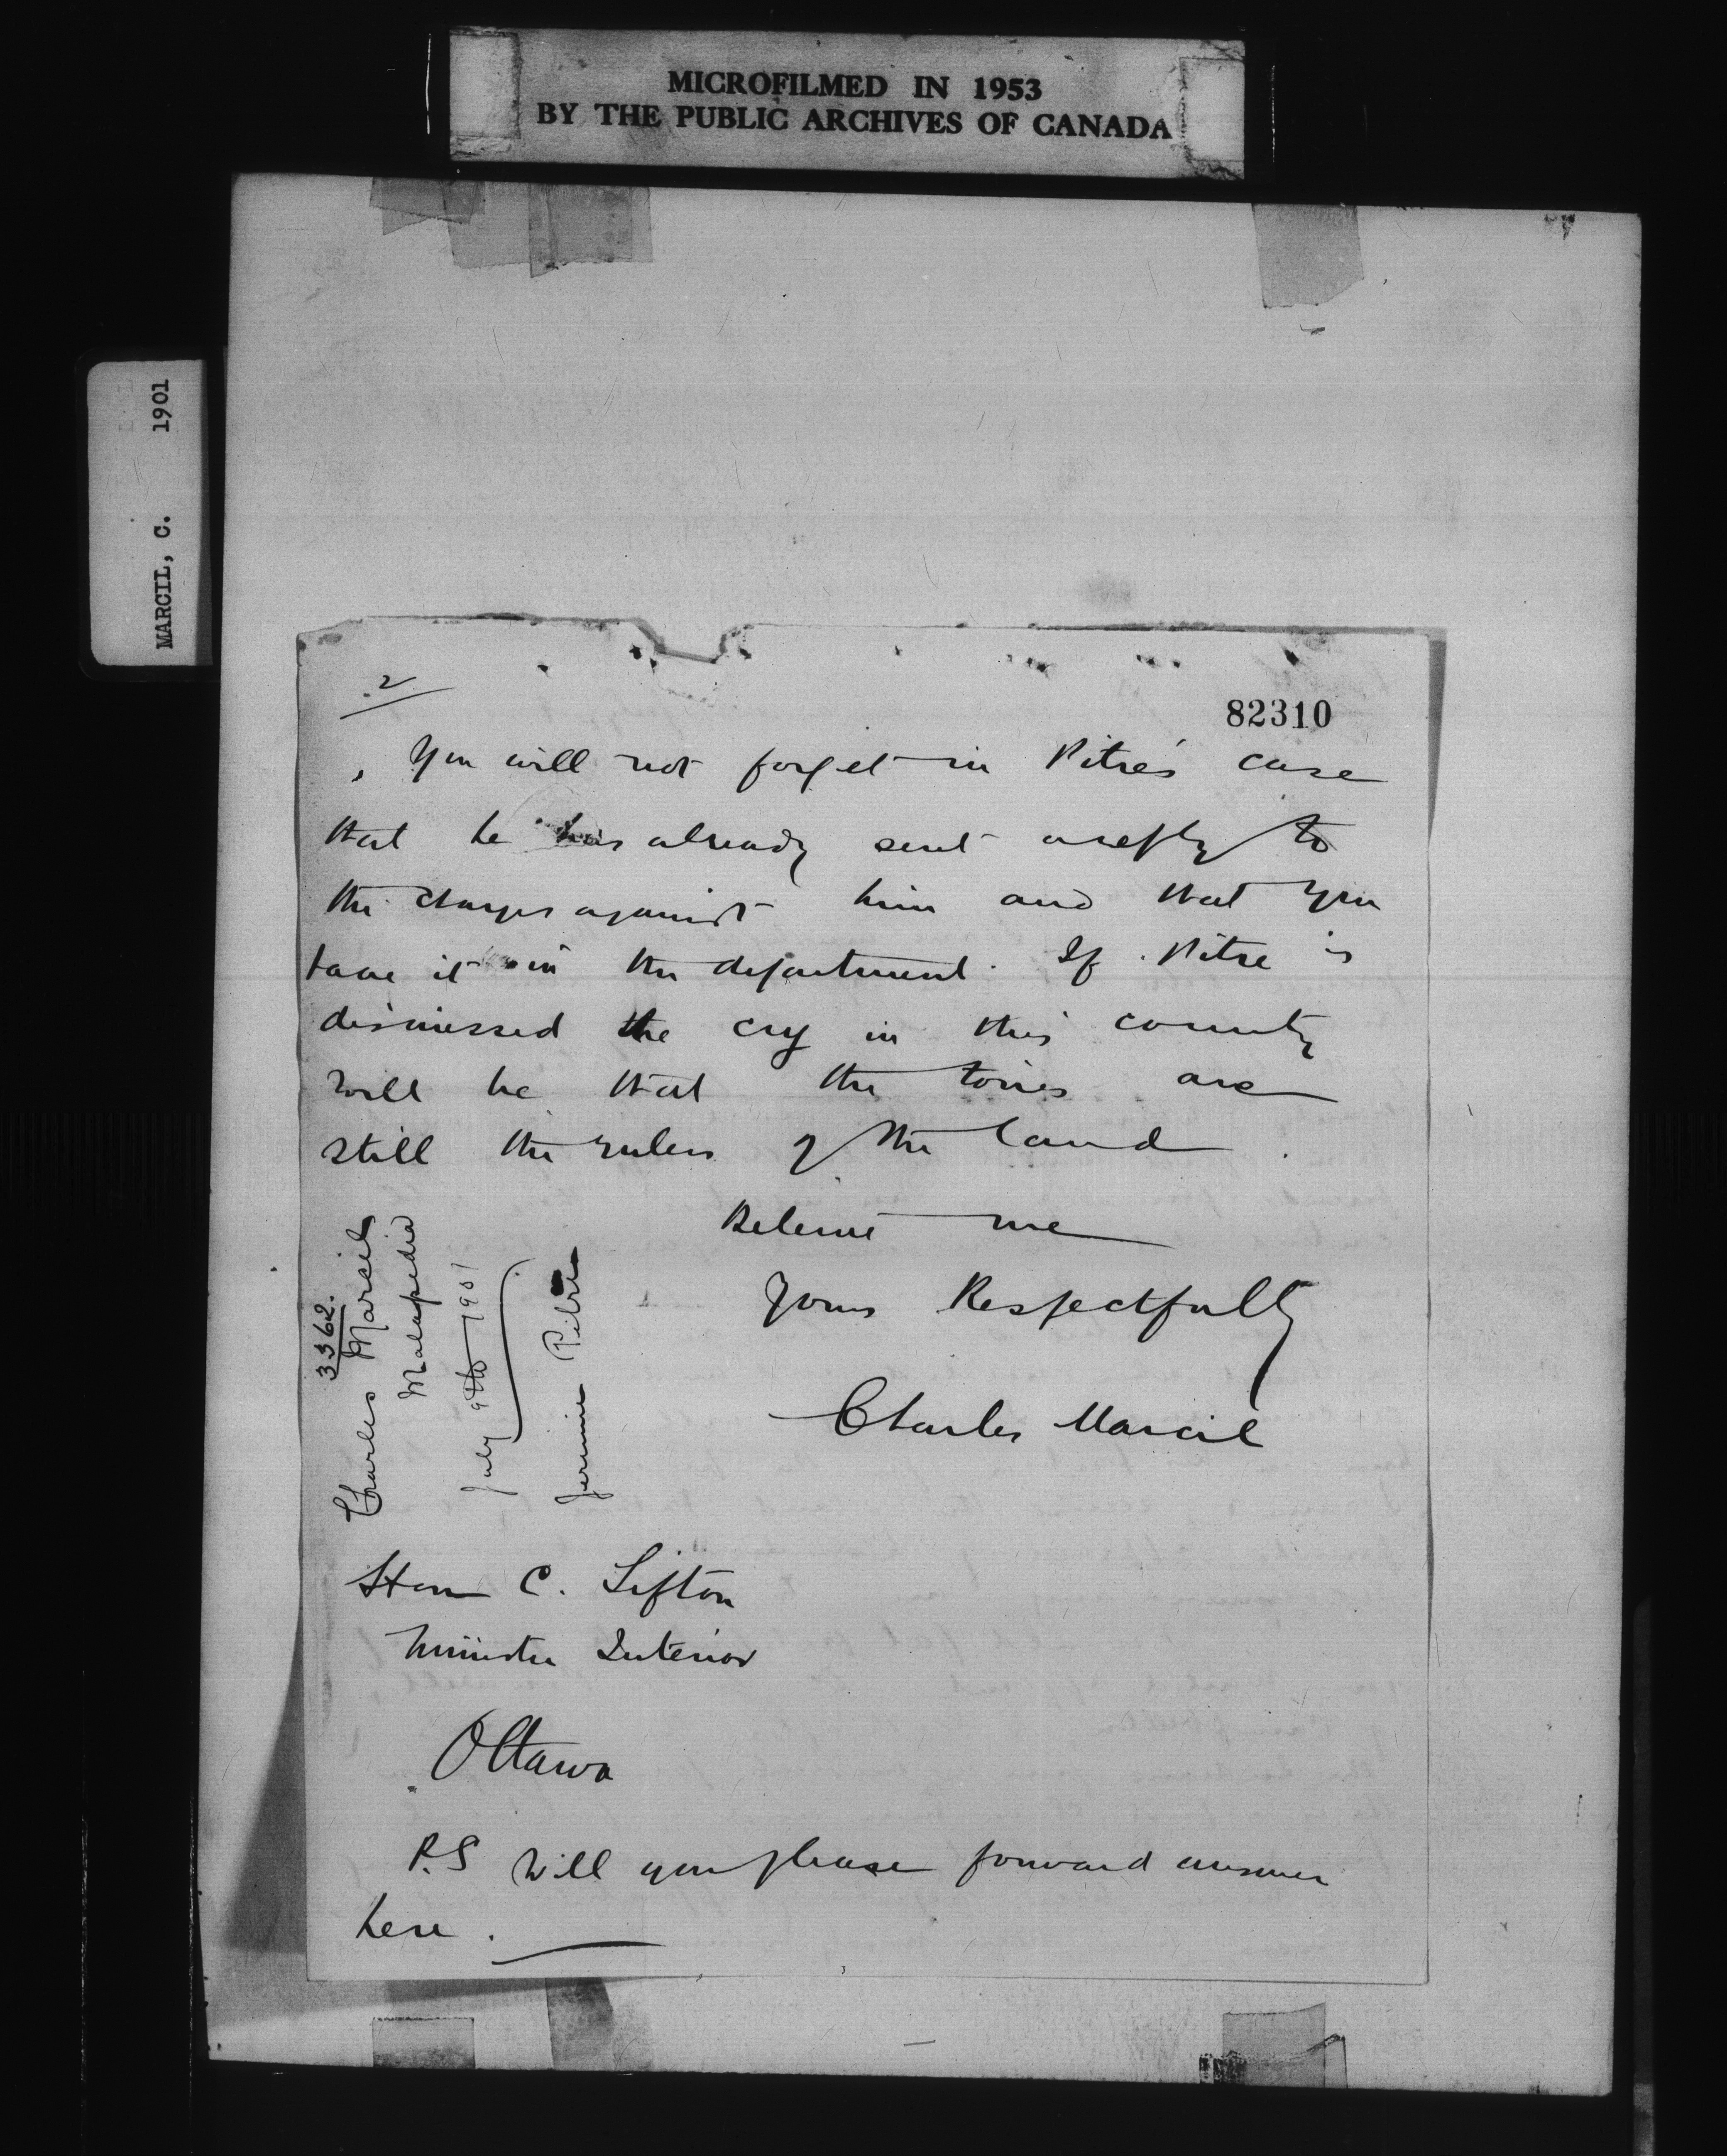 MICROFILMED IN 1953
BY THE PUBLIC ARCHIVES OF CANADA
MARCIL, C. 1901
2
82310
You will not forget in Pitre's case
that he has already sent a reply to
the charges against him and that you
have it in the department. If Pitre is
dismissed the cry in this county
will be that the tories are
still the rulers of the land.
Believe me
Yours Respectfully
Charles Marcil
3362.
Charles Marcil
Matapedia
July 9th 1901
Jeremie Pitre
Hon C. Sifton
Minister Interior
Ottawa
P.S Will you please forward answer
here.